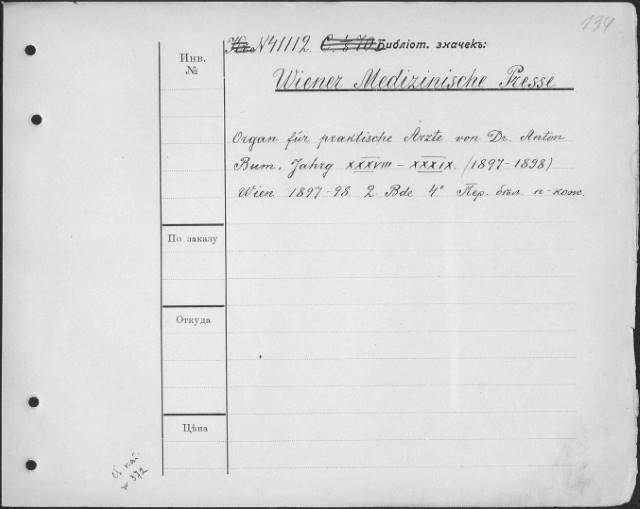 134
N 41112. Библіот. значекъ:
Инв. №
Wiener Medizinische Presse
Organ für praktische Ärzte von Dr. Anton
Bum. Jahrg XXXVIII – XXXIX. (1897-1898)
Wien 1897-98 2 Bde 4° Пер. бѣл п-кож.
По заказу
Откуда
Цѣна